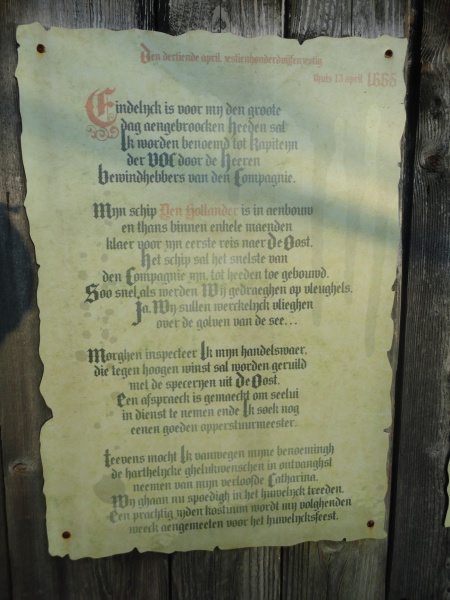 Den dertiende april, zestienhonderdvijfenzestig
thuis 13 april 1665
Eindelyck is voor myn den groote
dag aengebroocken Heeden sal
Ik worden benoemd tot Kapiteyn
der VOC door de Heeren
bewindhebbers van den Compagnie.
Myn schip Den Hollander is in aenbouw
en thans binnen enkele maenden
klaer voor zyn eerste reis naer De Oost.
Het schip sal het snelste van
den Compagnie zyn, tot heeden toe gebouwd.
Soo snel als werden Wij gedraeghen op vleughels.
Ja, Wy sullen werckelyck vlieghen
over de golven van de see...
Morghen inspecteer Ik myn handelswaer,
die tegen hoogen winst sal worden geruild
met de specerven uit De Oost.
Een afspraeck is gemaeckt om seelui
in dienst te nemen ende Ik soek nog
eenen goeden opperstuurmeester.
Teevens mocht Ik vanwegen myne benoemingh
de harthelycke ghelukwenschen in ontvanghst
neemen van myn verloofde Catharina.
Wy ghaan nu spoedigh in het huwelyck treeden.
Een prachtig zyden kostuum wordt my volghenden
weeck aengemeeten voor het huwelycksfeest.